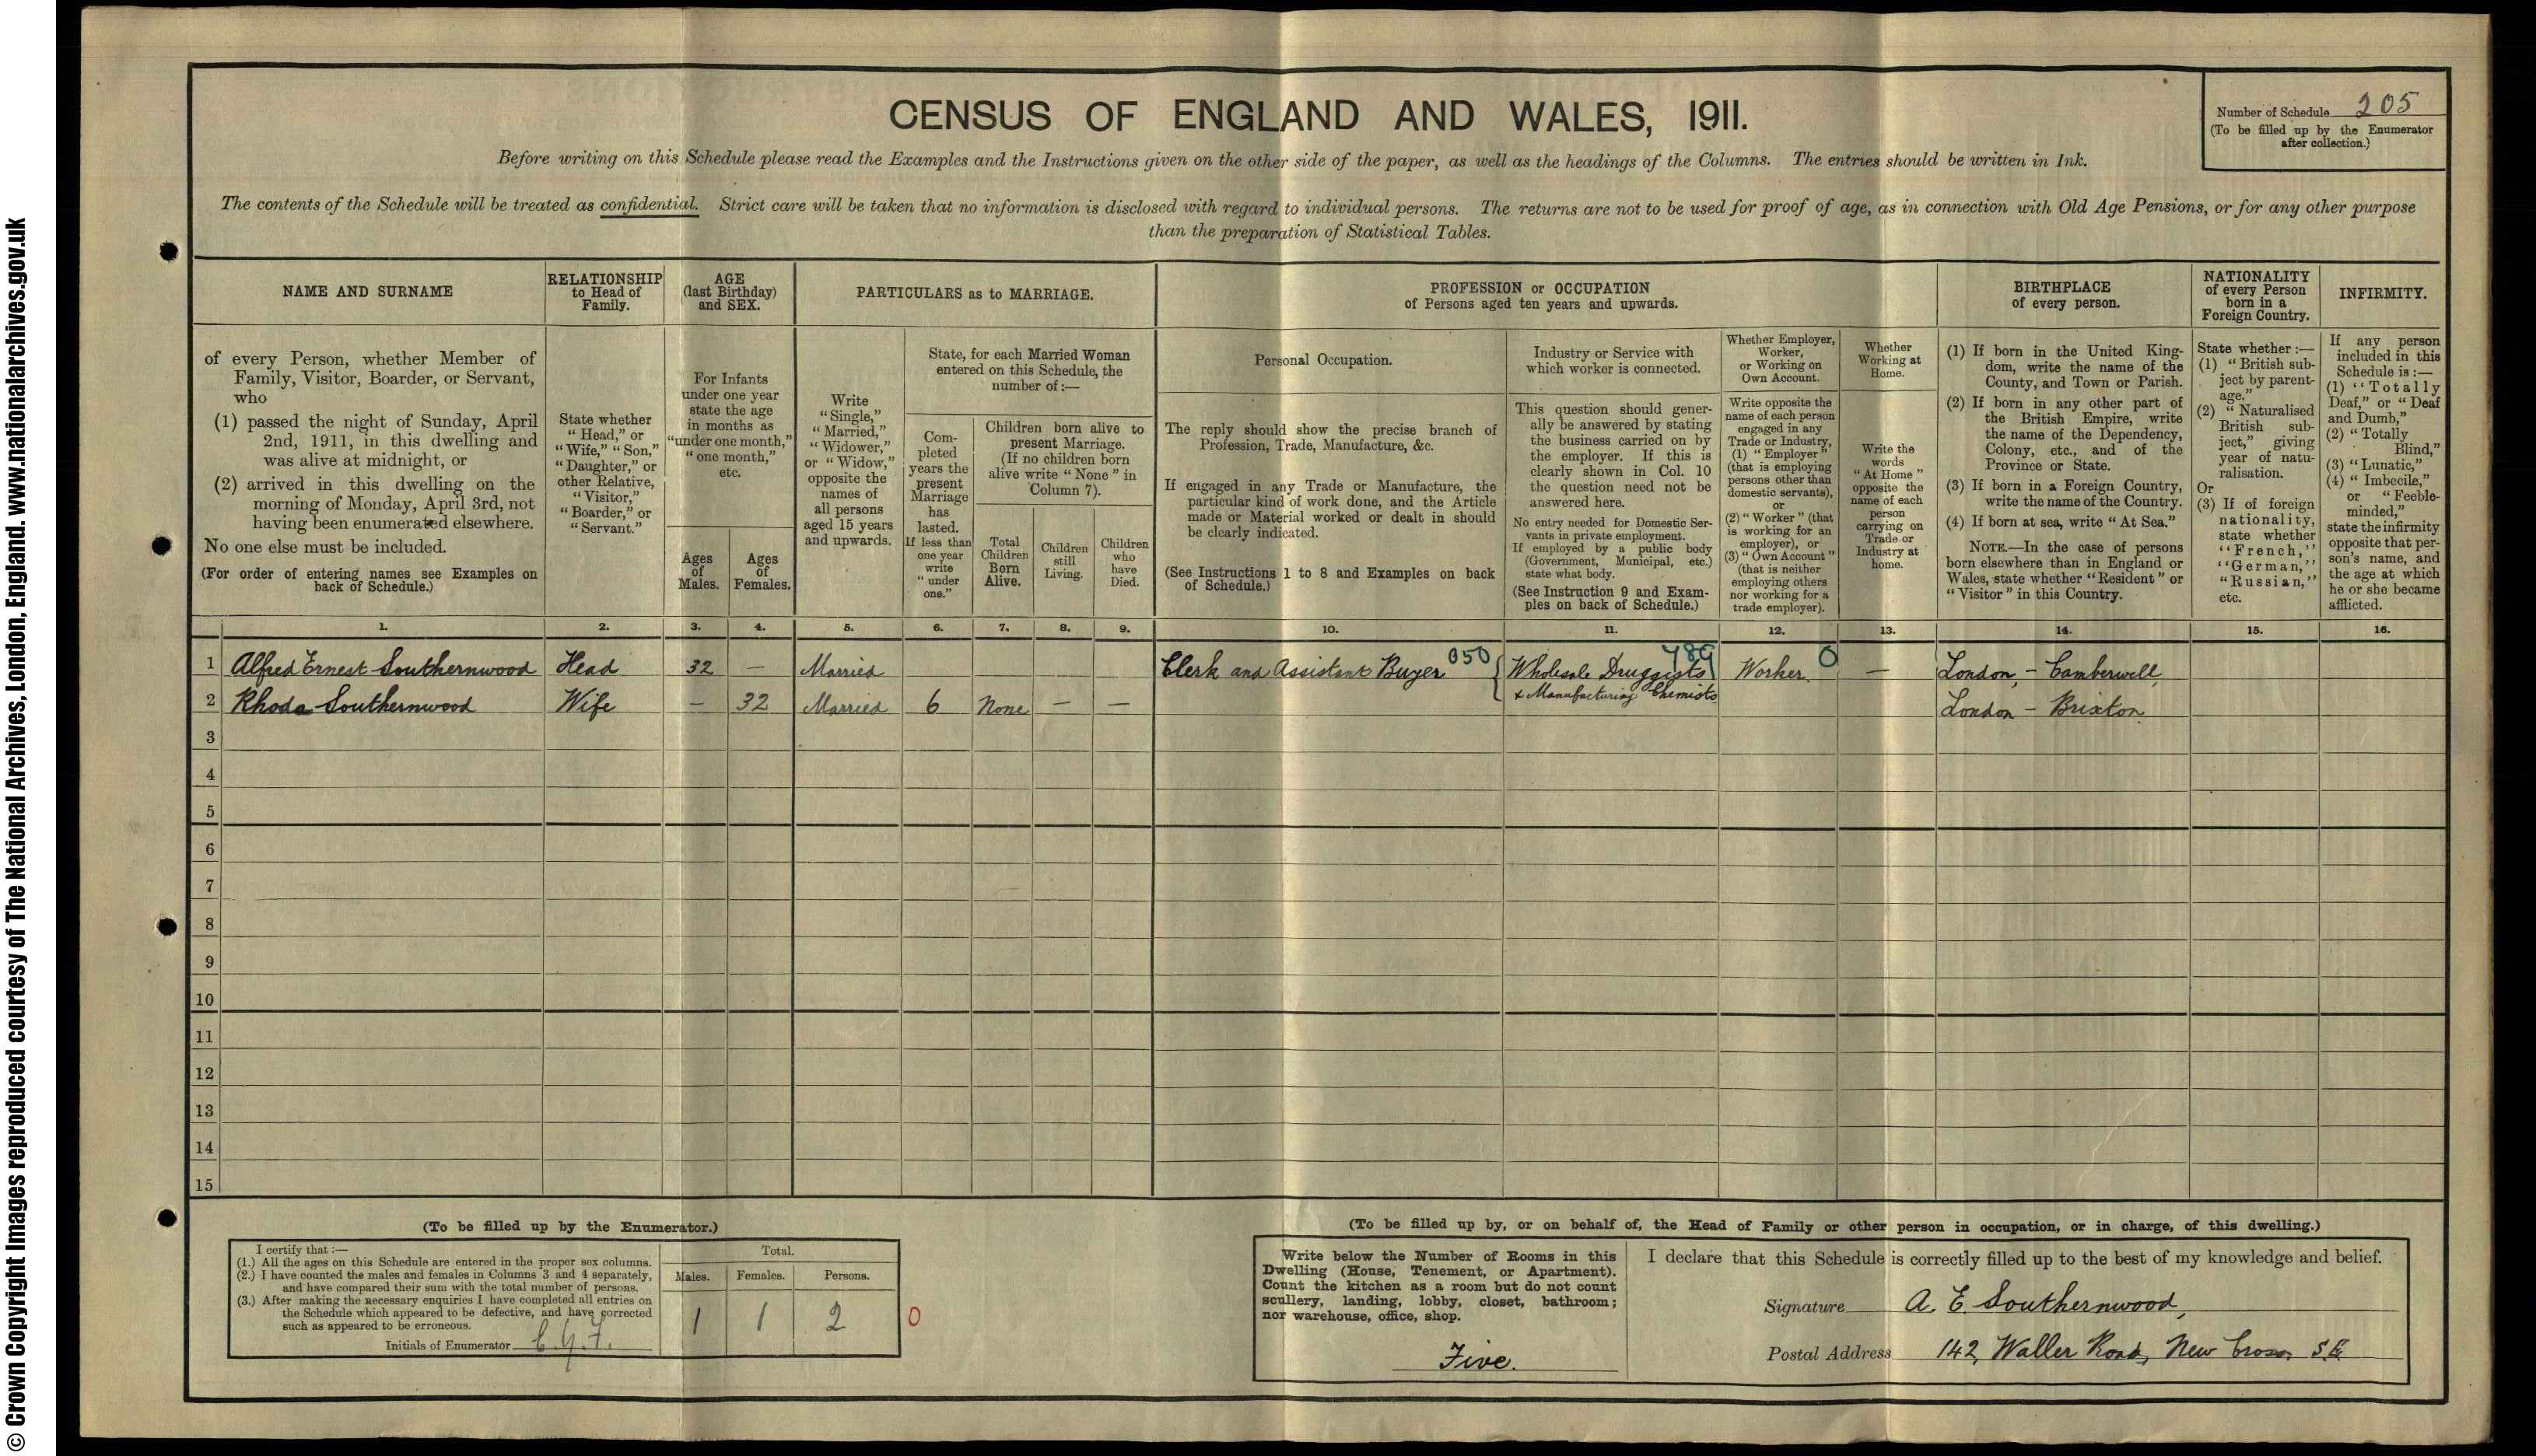 © Crown Copyright Images reproduced courtesy of The National Archives, London, England. www.nationalarchives.gov.uk
CENSUS OF ENGLAND AND WALES, 1911.
Number of Schedule 205
(To be filled up by the Enumerator
after collection.)
Before writing on this Schedule please read the Examples and the Instructions given on the other side of the paper, as well as the headings of the Columns. The entries should be written in Ink.
The contents of the Schedule will be treated as confidential. Strict care will be taken that no information is disclosed with regard to individual persons. The returns are not to be used for proof of age, as in connection with Old Age Pensions, or for any other purpose
than the preparation of Statistical Tables.
NAME AND SURNAME
of every Person, whether Member of
Family, Visitor, Boarder, or Servant,
who
(1) passed the night of Sunday, April
2nd, 1911, in this dwelling and
was alive at midnight, or
(2) arrived in this dwelling on the
morning of Monday, April 3rd, not
having been enumerated elsewhere.
No one else must be included.
(For order of entering names see Examples on
back of Schedule.)
RELATIONSHIP
to Head of
Family.
State whether
"Head," or
"Wife," "Son,"
"Daughter," or
other Relative,
"Visitor,"
"Boarder," or
"Servant."
AGE
(last Birthday)
and SEX.
For Infants
under one year
state the age
in months as
"under one month,"
"one month,"
etc.
Ages
of
Males.
Ages
of
Females.
PARTICULARS as to MARRIAGE.
Write
"Single,"
"Married,"
"Widower,"
or "Widow,"
opposite the
names of
all persons
aged 15 years
and upwards.
State, for each Married Woman
entered on this Schedule, the
number of:—
Com-
pleted
years the
present
Marriage
has
lasted.
If less than
one year
write
"under
one."
Children born alive to
present Marriage.
(If no children born
alive write "None" in
Column 7).
Total
Children
Born
Alive.
Children
still
Living.
Children
who
have
Died.
PROFESSION or OCCUPATION
of Persons aged ten years and upwards.
Personal Occupation.
The reply should show the precise branch of
Profession, Trade, Manufacture, &c.
If engaged in any Trade or Manufacture, the
particular kind of work done, and the Article
made or Material worked or dealt in should
be clearly indicated.
(See Instructions 1 to 8 and Examples on back
of Schedule.)
Industry or Service with
which worker is connected.
This question should gener-
ally be answered by stating
the business carried on by
the employer. If this is
clearly shown in Col. 10
the question need not be
answered here.
No entry needed for Domestic Ser-
vants in private employment.
If employed by a public body
(Government, Municipal, etc.)
state what body.
(See Instruction 9 and Exam-
ples on back of Schedule.)
Whether Employer,
Worker,
or Working on
Own Account.
Write opposite the
name of each person
engaged in any
Trade or Industry,
(1) "Employer"
(that is employing
persons other than
domestic servants),
or
(2) "Worker" (that
is working for an
employer), or
(3) "Own Account"
(that is neither
employing others
nor working for a
trade employer).
Whether
Working at
Home.
Write the
words
"At Home"
opposite the
name of each
person
carrying on
Trade or
Industry at
home.
BIRTHPLACE
of every person.
(1) If born in the United King-
dom, write the name of the
County, and Town or Parish.
(2) If born in any other part of
the British Empire, write
the name of the Dependency,
Colony, etc., and of the
Province or State.
(3) If born in a Foreign Country,
write the name of the Country.
(4) If born at sea, write "At Sea."
NOTE.—In the case of persons
born elsewhere than in England or
Wales, state whether "Resident" or
"Visitor" in this Country.
NATIONALITY
of every Person
born in a
Foreign Country.
State whether:—
(1) "British sub-
ject by parent-
age."
(2) "Naturalised
British sub-
ject," giving
year of natu-
ralisation.
Or
(3) If of foreign
nationality,
state whether
"French,"
"German,"
"Russian,"
etc.
INFIRMITY.
If any person
included in this
Schedule is:—
(1) "Totally
Deaf," or "Deaf
and Dumb,"
(2) "Totally
Blind,"
(3) "Lunatic,"
(4) "Imbecile,"
or "Feeble-
minded,"
state the infirmity
opposite that per-
son's name, and
the age at which
he or she became
afflicted.
1. 2. 3. 4. 5. 6. 7. 8. 9. 10. 11. 12. 13. 14. 15. 16.
1 Alfred Ernest Southernwood Head 32 — Married Clerk and Assistant Buyer 050 Wholesale Druggists 789 Worker 0 — London, - Camberwell,
& Manufacturing Chemists
2 Rhoda Southernwood Wife — 32 Married 6 None — — London - Brixton
3
4
5
6
7
8
9
10
11
12
13
14
15
(To be filled up by the Enumerator.)
I certify that:—
(1.) All the ages on this Schedule are entered in the proper sex columns.
(2.) I have counted the males and females in Columns 3 and 4 separately,
and have compared their sum with the total number of persons.
(3.) After making the necessary enquiries I have completed all entries on
the Schedule which appeared to be defective, and have corrected
such as appeared to be erroneous.
Initials of Enumerator
Total.
Males. Females. Persons.
1 1 2 0
(To be filled up by, or on behalf of, the Head of Family or other person in occupation, or in charge, of this dwelling.)
Write below the Number of Rooms in this
Dwelling (House, Tenement, or Apartment).
Count the kitchen as a room but do not count
scullery, landing, lobby, closet, bathroom;
nor warehouse, office, shop.
Five.
I declare that this Schedule is correctly filled up to the best of my knowledge and belief.
Signature A. E. Southernwood,
Postal Address 142, Waller Road, New Cross, S.E.